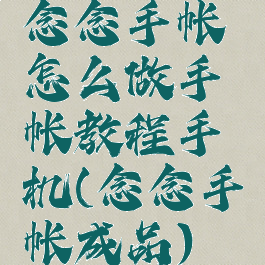 念念手帐
怎么做手
帐教程手
机(念念手
帐成品)